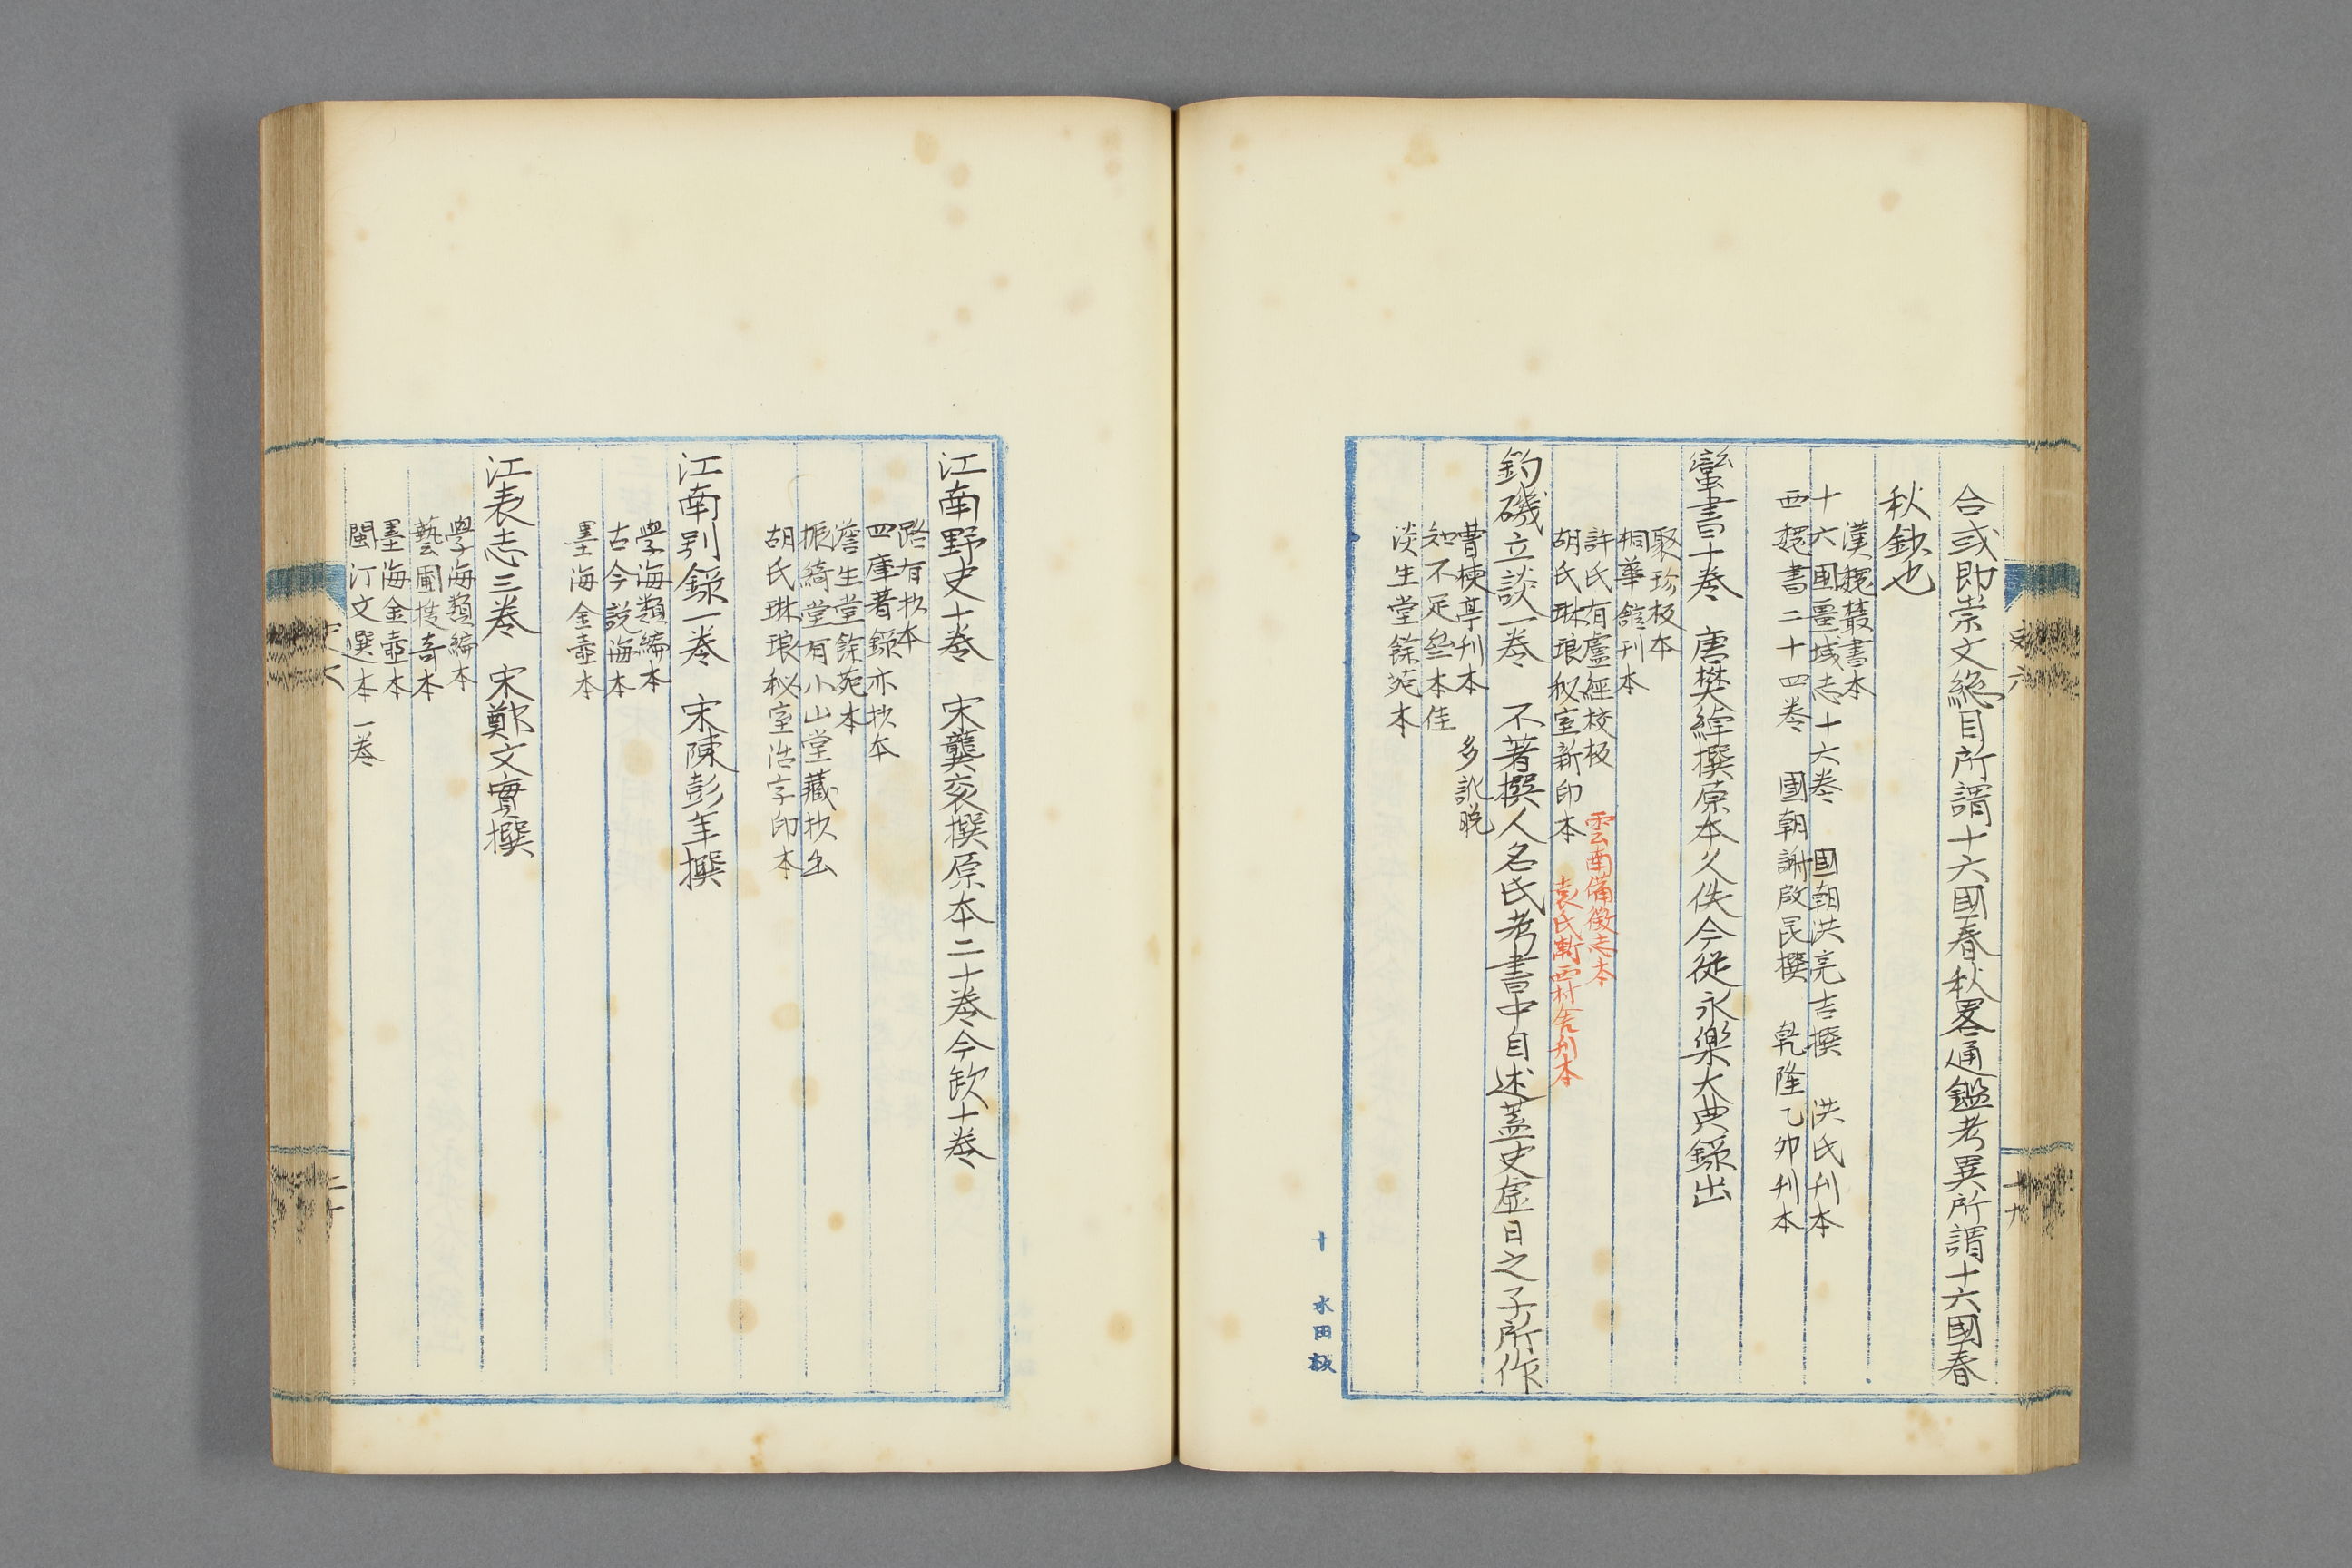 合或即崇文總目所謂十六國春秋畧通鑑考異所謂十六國春
秋鈔也
漢魏叢書本
十六國疆域志十六巻　國朝洪亮吉撰　洪氏刊本
西魏書二十四巻　國朝謝啟昆撰　乾隆乙卯刊本
蠻書十巻　唐樊綽撰原本久佚今從永樂大典錄出
聚珍板本
桐華館刊本
許氏有廬經校板　雲南備徵志本
胡氏琳琅秘室新印本　袁氏漸西村舍刊本
釣磯立談一巻　不著撰人名氏考書中自述葢史虛白之子所作
曹楝亭刊本　多訛脱
知不足叁本佳
淡生堂餘苑本
史六
十九
十　水田板
江南野史十巻　宋龔衮撰原本二十巻今欽十巻
路有抄本
四庫著錄亦抄本
澹生堂餘苑本
振綺堂有小山堂藏抄出
胡氏琳琅秘室活字印本
江南别錄一巻　宋陳彭年撰
學海類編本
古今説海本
墨海金壺本
江表志三巻　宋鄭文寶撰
學海類編本
藝圃搜奇本
墨海金壺本
閩汀文選本一巻
二十